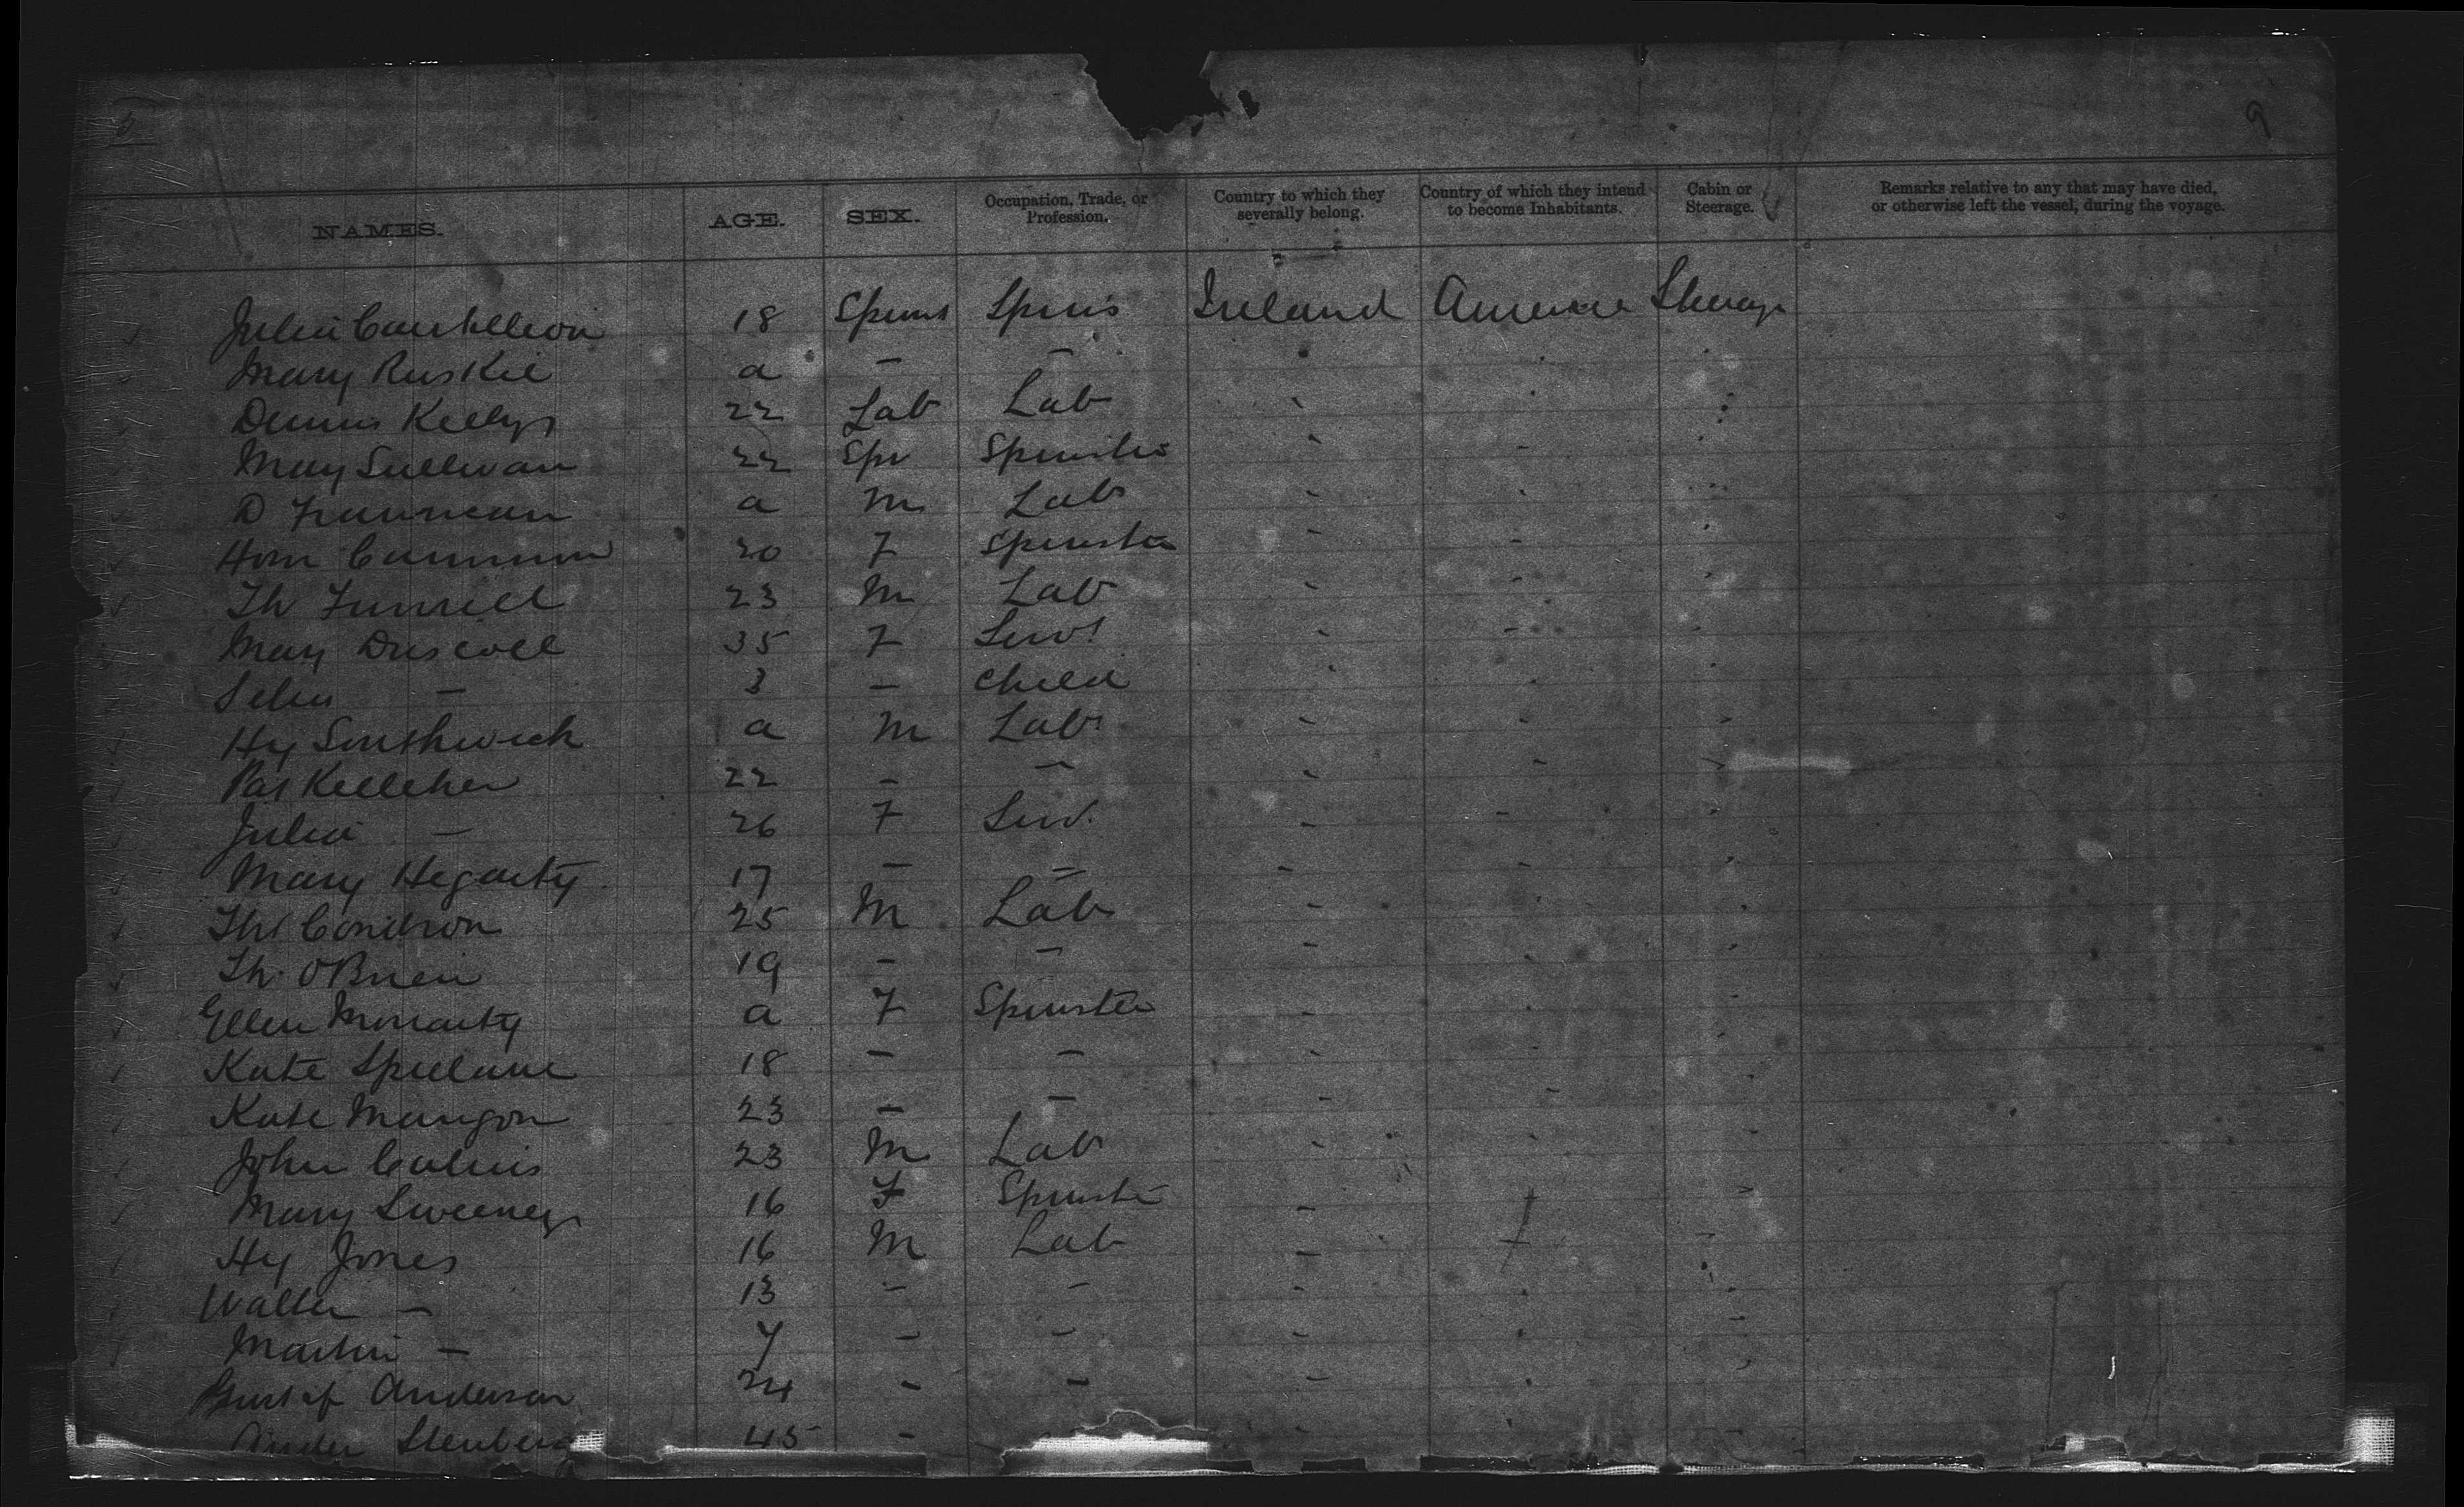 9
NAMES. AGE. SEX. Occupation, Trade, or Profession. Country to which they severally belong. Country of which they intend to become Inhabitants. Cabin or Steerage. Remarks relative to any that may have died, or otherwise left the vessel, during the voyage.
Julia 18 Spins Spins Ireland America Steerage
Mary Ruskie a — —
Dennis Kelly 22 Lab Lab
May Sullivan 22 Spr Spinster
D a M Lab
20 F Spinster
Th 23 M Lab
May Driscoll 35 F Servt
— 3 — Child
Hy Southwick a M Lab
Pat Kelleher 22 — —
Julia — 26 F Serv.
Mary Hegarty 17 — —
Condron 25 M Lab
Th. OBrien 19 — —
Ellen Moriarty a F Spinster
Kate Spillane 18 — —
Kate Mangon 23 — —
John 23 M Lab
Mary Sweeney 16 F Spinster
Hy Jones 16 M Lab
Walter — 13 — —
Martin — 7 — —
Gustaf Anderson 24 — —
Stenberg 45 —